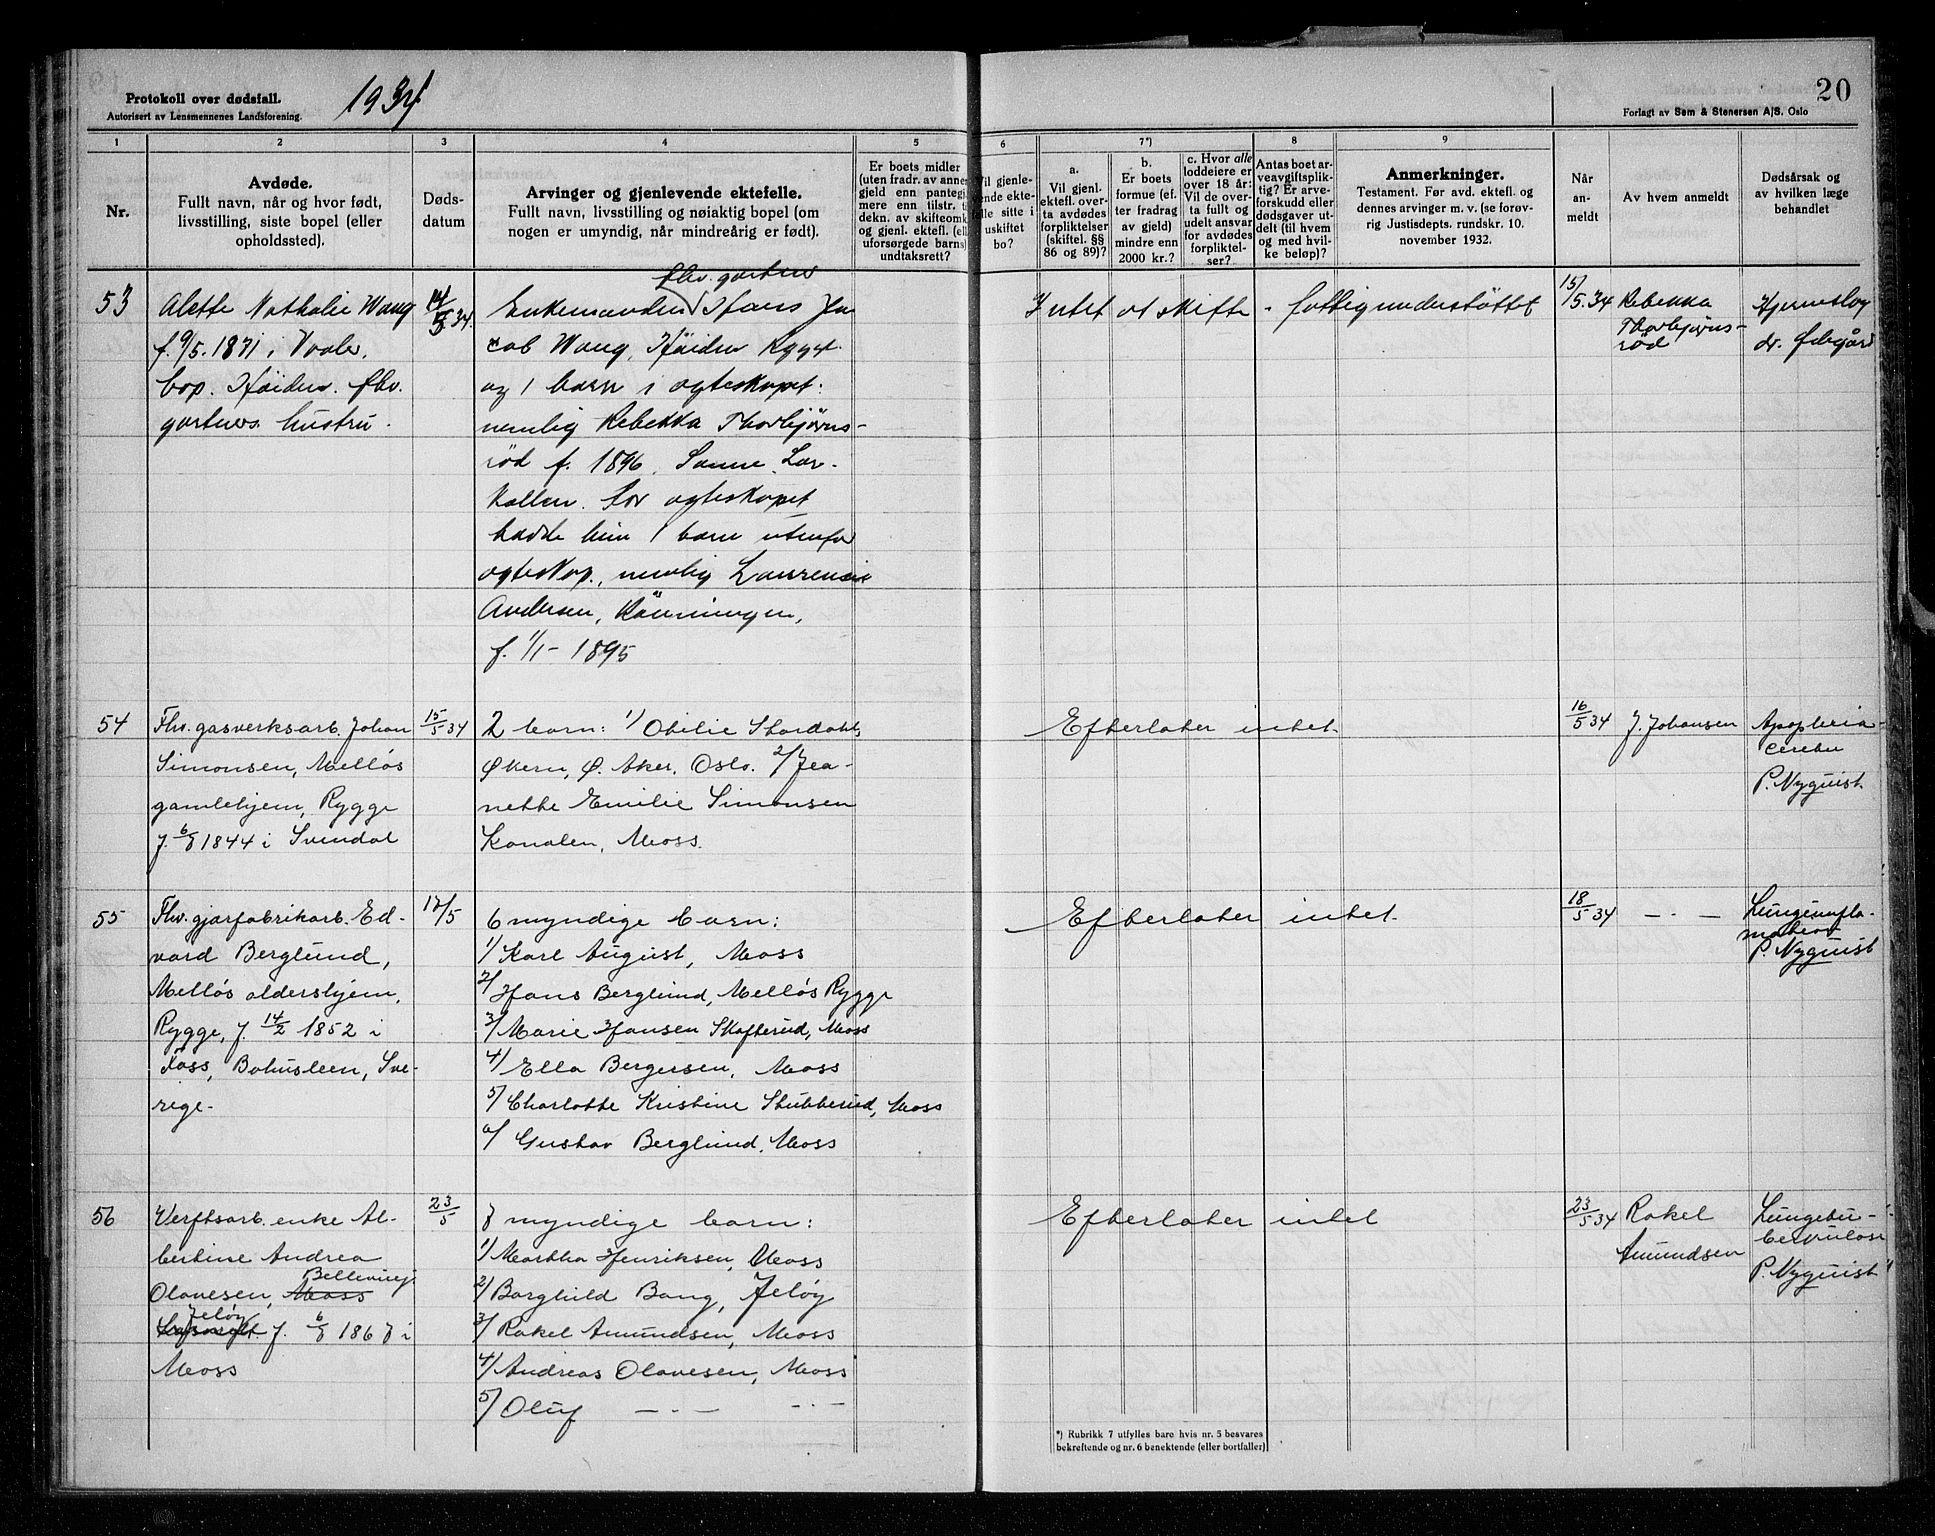 Protokoll over dødsfall.
Autorisert av Lensmennenes Landsforening.
1934
20
Forlagt av Sem & Stenersen A/S. Oslo
1
2
3
4
5
6
7*)
8
9
Nr.
Avdøde.
Fullt navn, når og hvor født,
livsstilling, siste bopel (eller
opholdssted).
Døds-
datum
Arvinger og gjenlevende ektefelle.
Fullt navn, livsstilling og nøiaktig bopel (om
nogen er umyndig, når mindreårig er født).
Er boets midler
(uten fradr. av annen
gjeld enn pantegj
mere enn tilstr. ti
dekn. av skifteomk
og gjenl. ektefl. (el
uforsørgede barns)
undtaksrett?
Vil gjenle-
ende ekte-
elle sitte i
uskiftet
bo?
a.
Vil gjenl.
ektefl. over-
ta avdødes
forpliktelser
(skiftel. §§
86 og 89)?
b.
Er boets
formue (ef.
ter fradrag
av gjeld)
mindre enn
2000 kr.?
c. Hvor alle
loddeiere er
over 18 år:
Vil de over-
ta fullt og
udelt ansvar
for avdødes
forpliktel-
ser?
Antas boet ar-
veavgiftsplik-
tig? Er arve-
forskudd eller
dødsgaver ut-
delt (til hvem
og med hvil-
ke beløp)?
Anmerkninger.
Testament. Før avd. ektefl. og
dennes arvinger m. v. (se forøv-
rig Justisdepts. rundskr. 10.
november 1932.
Når
an-
meldt
Av hvem anmeldt
Dødsårsak og
av hvilken læge
behandlet
53
Alette Nathalie Wang
f. 9/5. 1871 i Vaaler,
bop. Høiden. fhv.
gartners hustru.
14/5 34.
fhv. gartner
Enkemanden Hans Ja
cob Wang, Høiden Rygge
og 1 barn i egteskapet:
nemlig Rebekka Thorbjørns-
rød f. 1896. Sanne. Lar-
kollen. før egteskapet
hadde hun 1 barn utenfor
egteskap., nemlig
Andersen, Rønningen,
f. 1/1 - 1895
Intet at skifte - fattigunderstøttet
15/5.34
Rebekka
Thorbjørns-
rød
Hjerneslag
dr. Ødegård
54
Fhv. gasverksarb. Johan
Simonsen, Melløs
gamlehjem, Rygge
f. 6/8 1844 i Svindal
15/5 34
2 barn: 1/ Otilie Stordahl,
Økern, Ø. Aker, Oslo. 2/ Jea-
nette Emilie Simonsen
Kanalen, Moss.
Efterlater intet.
16/5 34
J. Johansen
Apoplexia
cerebri
P. Nyquist
55
Fhv. gjærfabrikarb. Ed-
vard Berglund,
Melløs aldershjem,
Rygge, f. 14/2 1852 i
Foss, Bohusleen, Sve-
rige.
17/5
6 myndige barn:
1/ Karl August, Moss
2/ Hans Berglund, Melløs Rygge
3/ Marie Hansen Skofterud, Moss
4/ Ella Bergersen, Moss
5/ Charlotte Kristine Stubberud, Moss
6/ Gustav Berglund, Moss
Efterlater intet.
18/5 34
— · —
Lungeinfla-
mation
P. Nyquist
56
Verftsarb. enke Al-
bertine Andrea
Bellevue,
Olavesen, Moss
Jeløy
f. 6/8 1868 i
Moss
23/5
8 myndige barn:
1/ Martha Henriksen, Moss
2/ Borghild Bang, Jeløy
3/ Rakel Amundsen, Moss
4/ Andreas Olavesen, Moss
5/ Oluf — · — — · —
Efterlater intet
23/5 34
Rakel
Amundsen
Lungetu-
berkulose
P. Nyquist
*) Rubrikk 7 utfylles bare hvis nr. 5 besvares
bekreftende og nr. 6 benektende (eller bortfaller)